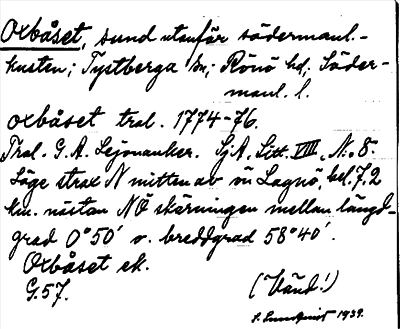 Oxbåset, sund utanför södermanl.-
kusten; Tystberga sn; Rönö hd, Söder-
manl. l.
oxbåset tral. 1774-76.
Tral. G.A. Lejonanker. Sj.A, Litt. VIII, N:o 8.
Läge strax N mitten av ön Lagnö, bel. 7,2
km. nästan NÖ skärningen mellan längd-
grad 0°50' o. breddgrad 58°40'.
Oxbåset ek.
G.57. (Vänd!)
Lundqvist 1939.